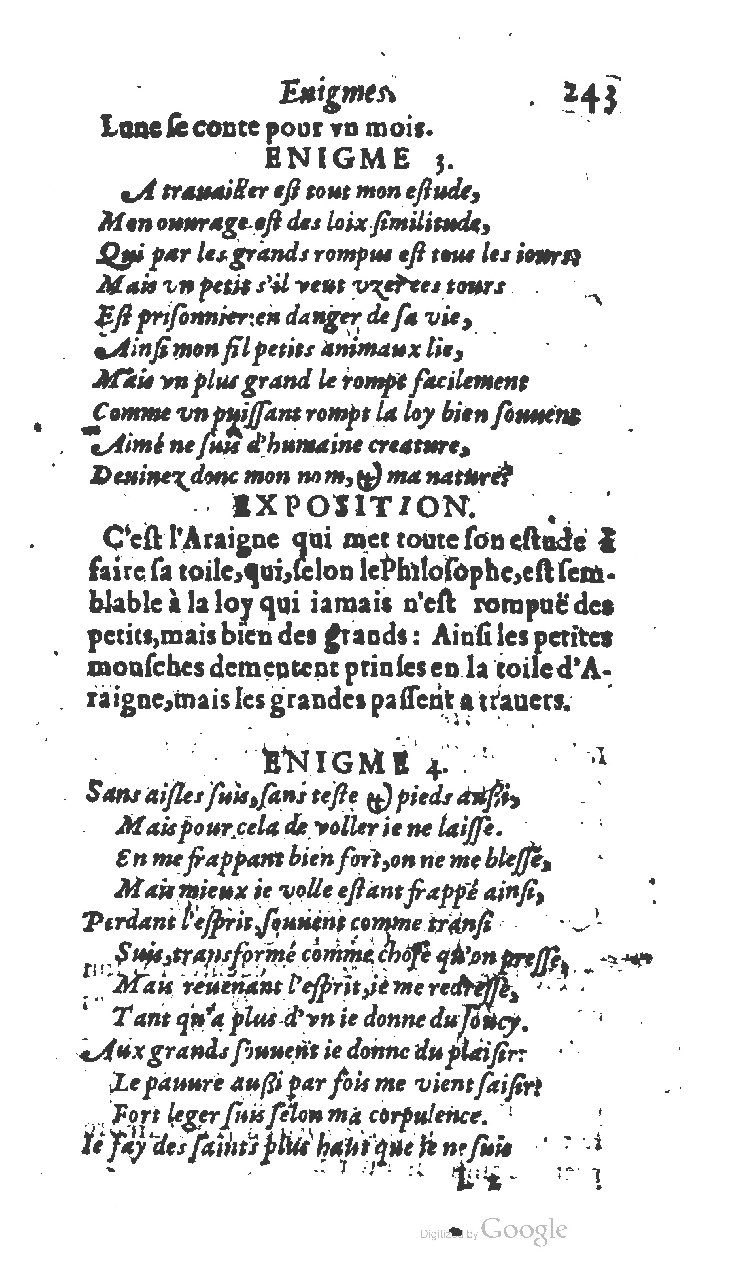 Enigmes. 243
Lune ſe conte pour vn mois.
ENIGME 3.
A trauailler eſt tout mon eſtude,
Mon ouurage eſt des loix ſimilitude,
Qui par les grands rompus eſt tous les iours
Mais vn petit s'il veut vzer ces tours
Eſt priſonnier en danger de ſa vie,
Ainſi mon fil petits animaux lie,
Mais vn plus grand le rompt facilement
Comme vn puiſſant rompt la loy bien ſouuent
Aimé ne ſuis d'humaine creature,
Deuinez donc mon nom, & ma nature?
EXPOSITION.
C'eſt l'Araigne qui met toute ſon eſtude à
faire ſa toile, qui, ſelon le Philoſophe, eſt ſem-
blable à la loy qui iamais n'eſt rompuë des
petits, mais bien des grands: Ainſi les petites
mouſches dementent prinſes en la toile d'A-
raigne, mais les grandes paſſent a trauers.
ENIGME 4.
Sans aiſles ſuis, ſans teſte & pieds auſſi,
Mais pour cela de voller ie ne laiſſe.
En me frappant bien fort, on ne me bleſſe,
Mais mieux ie volle eſtant frappé ainſi,
Perdant l'eſprit, ſouuent comme tranſi
Suis, transformé comme choſe qu'on preſſe,
Mais reuenant l'eſprit, ie me redreſſe,
Tant qu'a plus d'vn ie donne du ſoucy.
Aux grands ſouuent ie donne du plaiſir:
Le pauure auſſi par fois me vient ſaiſir:
Fort leger ſuis ſelon ma corpulence.
Ie fay des ſaints plus haut que ie ne ſuis
L 2
Digitized by Google